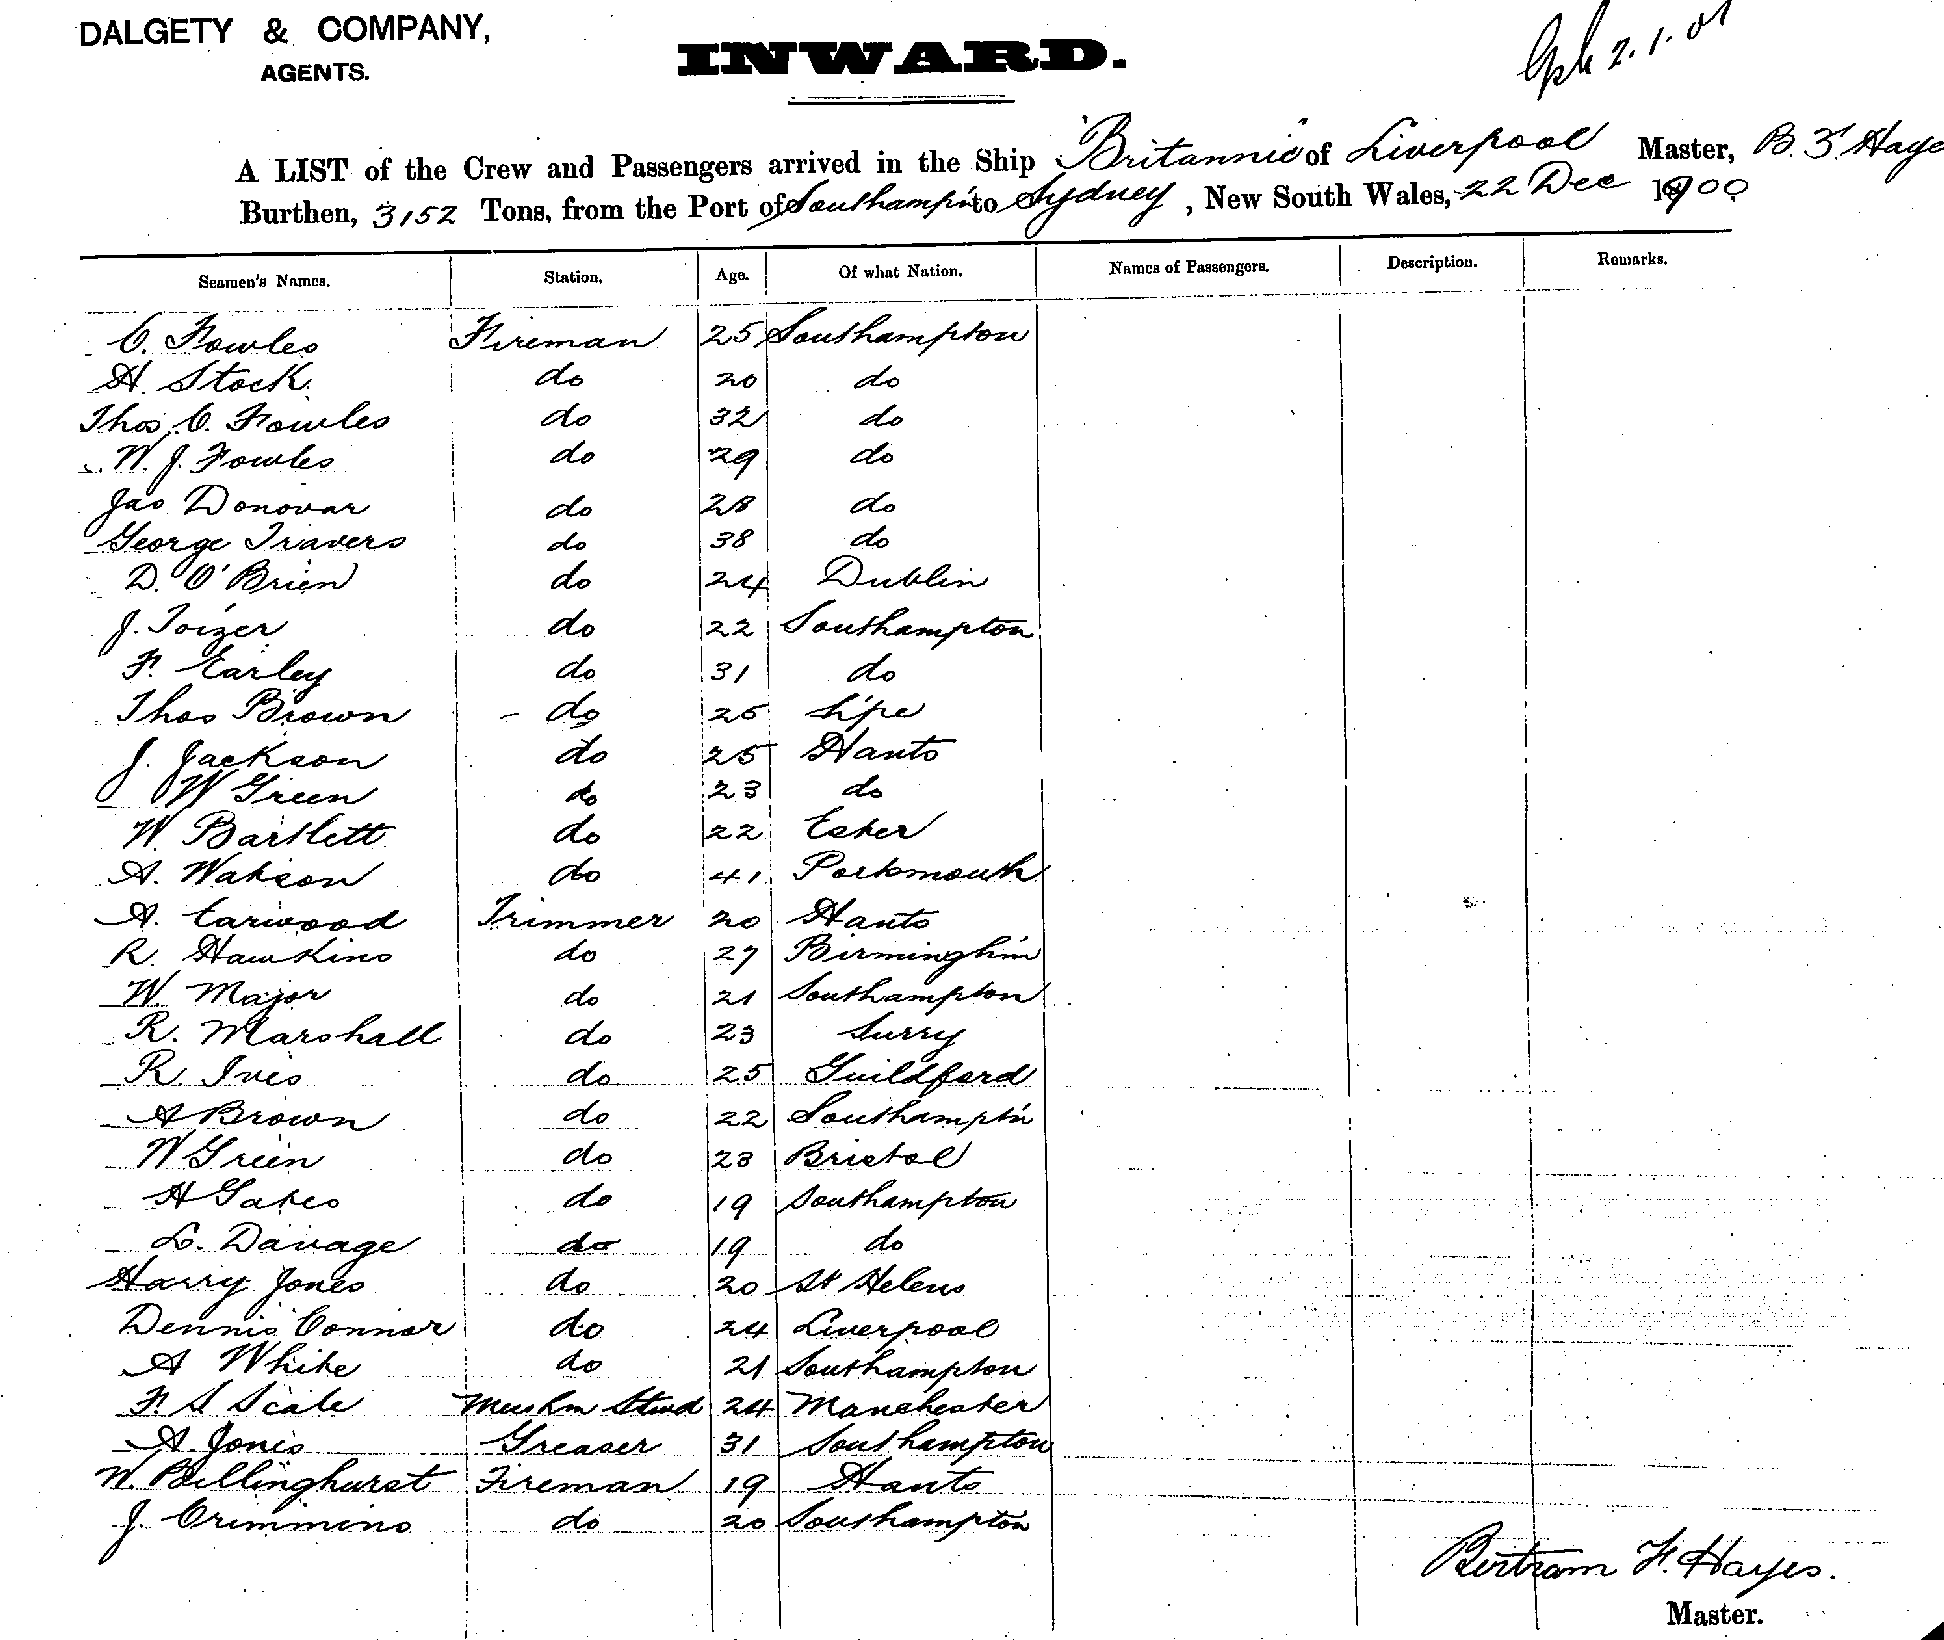 DALGETY & COMPANY,
AGENTS.
INWARD.
2.1.01
A LIST of the Crew and Passengers arrived in the Ship "Britannic" of Liverpool Master, B. F. Haye
Burthen, 3152 Tons, from the Port of Southampt'n to Sydney, New South Wales, 22 Dec 1900
Seamen's Names. Station. Age. Of what Nation. Names of Passengers. Description. Remarks.
C. Fowles Fireman 25 Southampton
H. Stock do 20 do
Thos C. Fowles do 32 do
W. J. Fowles do 29 do
Jas Donovan do 28 do
George Travers do 38 do
D. O'Brien do 24 Dublin
J. Toizer do 22 Southampton
F. Earley do 31 do
Thos Brown do 25
J. Jackson do 25 Hants
W Green do 23 do
W. Bartlett do 22
A. Watson do 41 Portsmouth
A. Earwood Trimmer 20 Hants
R. Hawkins do 27 Birmingh'm
W. Major do 21 Southampton
R. Marshall do 23 Surry
R Ives do 25 Guildford
A Brown do 22 Southampt'n
W Green do 23 Bristol
H Gates do 19 Southampton
L. Davage do 19 do
Harry Jones do 20 St Helens
Dennis Connor do 24 Liverpool
A White do 21 Southampton
F. S Seale 24 Manchester
A. Jones Greaser 31 Southampton
W. Billinghurst Fireman 19 Hants
J. Crimmins do 20 Southampton
Bertram F. Hayes.
Master.